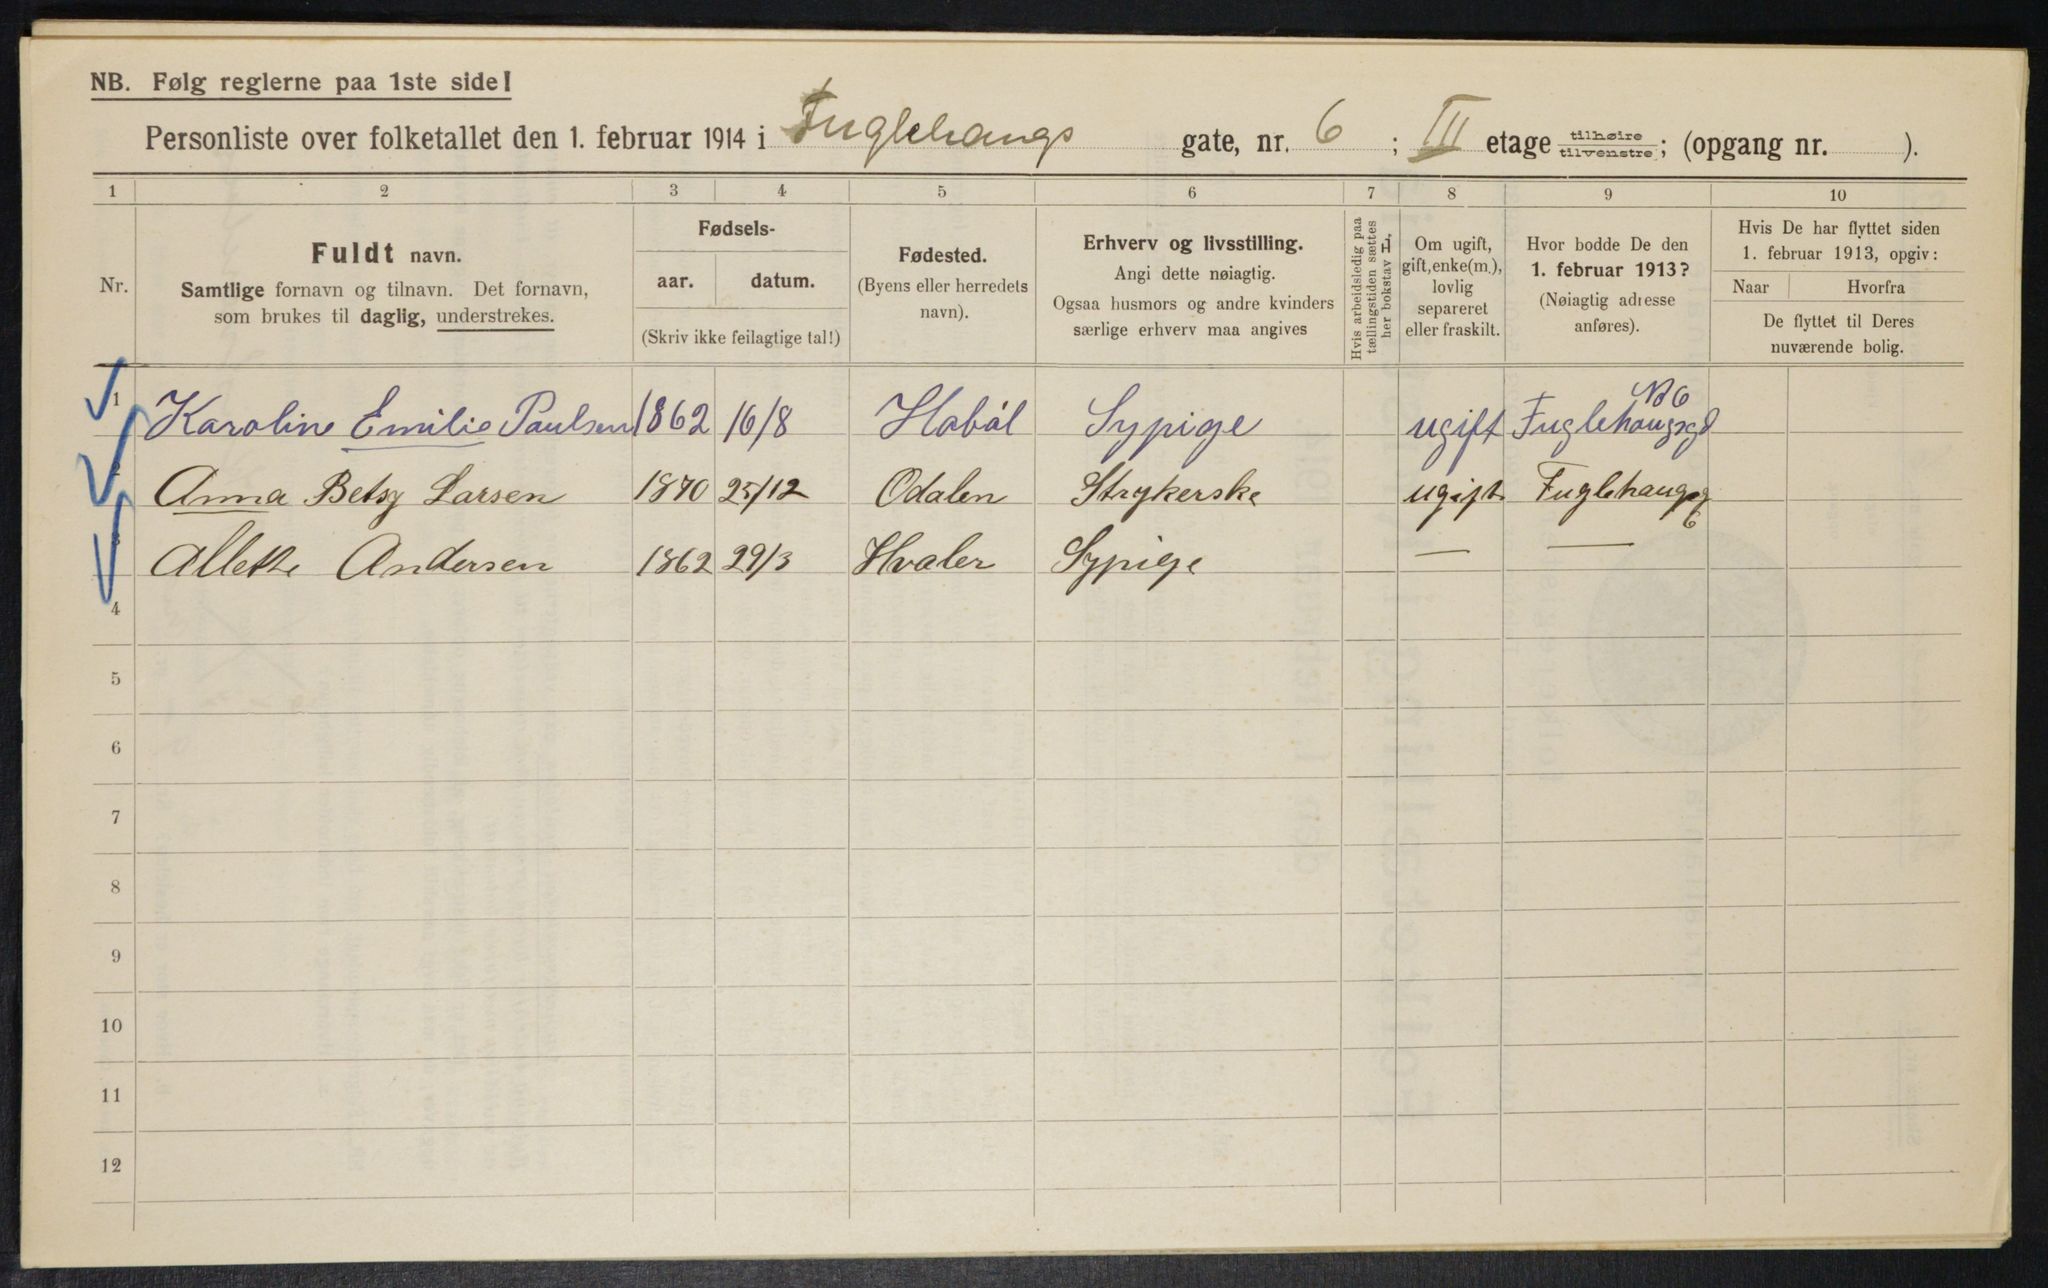 NB. Følg reglerne paa 1ste side!
Personliste over folketallet den 1. februar 1914 i Fuglehaugs gate, nr. 6 ; III etage tilhøire tilvenstre; (opgang nr. ).
1 2 3 4 5 6 7 8 9 10
Nr.
Fuldt navn.
Samtlige fornavn og tilnavn. Det fornavn,
som brukes til daglig, understrekes.
Fødsels-
aar. datum.
(Skriv ikke feilagtige tal!)
Fødested.
(Byens eller herredets
navn).
Erhverv og livsstilling.
Angi dette nøiagtig.
Ogsaa husmors og andre kvinders
særlige erhverv maa angives
Hvis arbeidsledig paa
tællingstiden sættes
her bokstav L.
Om ugift,
gift, enke(m.),
lovlig
separeret
eller fraskilt.
Hvor bodde De den
1. februar 1913?
(Nøiagtig adresse
anføres).
Hvis De har flyttet siden
1. februar 1913, opgiv:
Naar Hvorfra
De flyttet til Deres
nuværende bolig.
1 Karoline Emilie Paulsen 1862 16/8 Hobøl Sypige ugift Fuglehaugsgd No 6
2 Anna Betsy Larsen 1870 25/12 Odalen Strykerske ugift Fuglehaugsg 6
3 Allette Andersen 1862 29/3 Hvaler Sypige — —
4
5
6
7
8
9
10
11
12